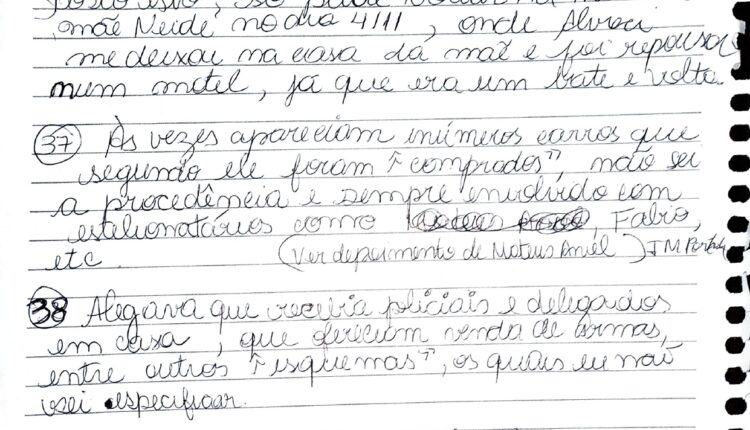 mãe Neide no dia 4/11, onde Alvaci
me deixou na casa da mãe e foi repousar
num motel, já que era um bate e volta.
37 Às vezes apareciam inúmeros carros que
segundo ele foram "comprados", não sei
a procedência e sempre envolvido com
estelionatários como Fabio,
etc. (Ver depoimento de Mateus ) JM
38 Alegava que recebia policiais e delegados
em casa, que ofereciam venda de armas,
entre outros "esquemas", os quais eu não
sei especificar.